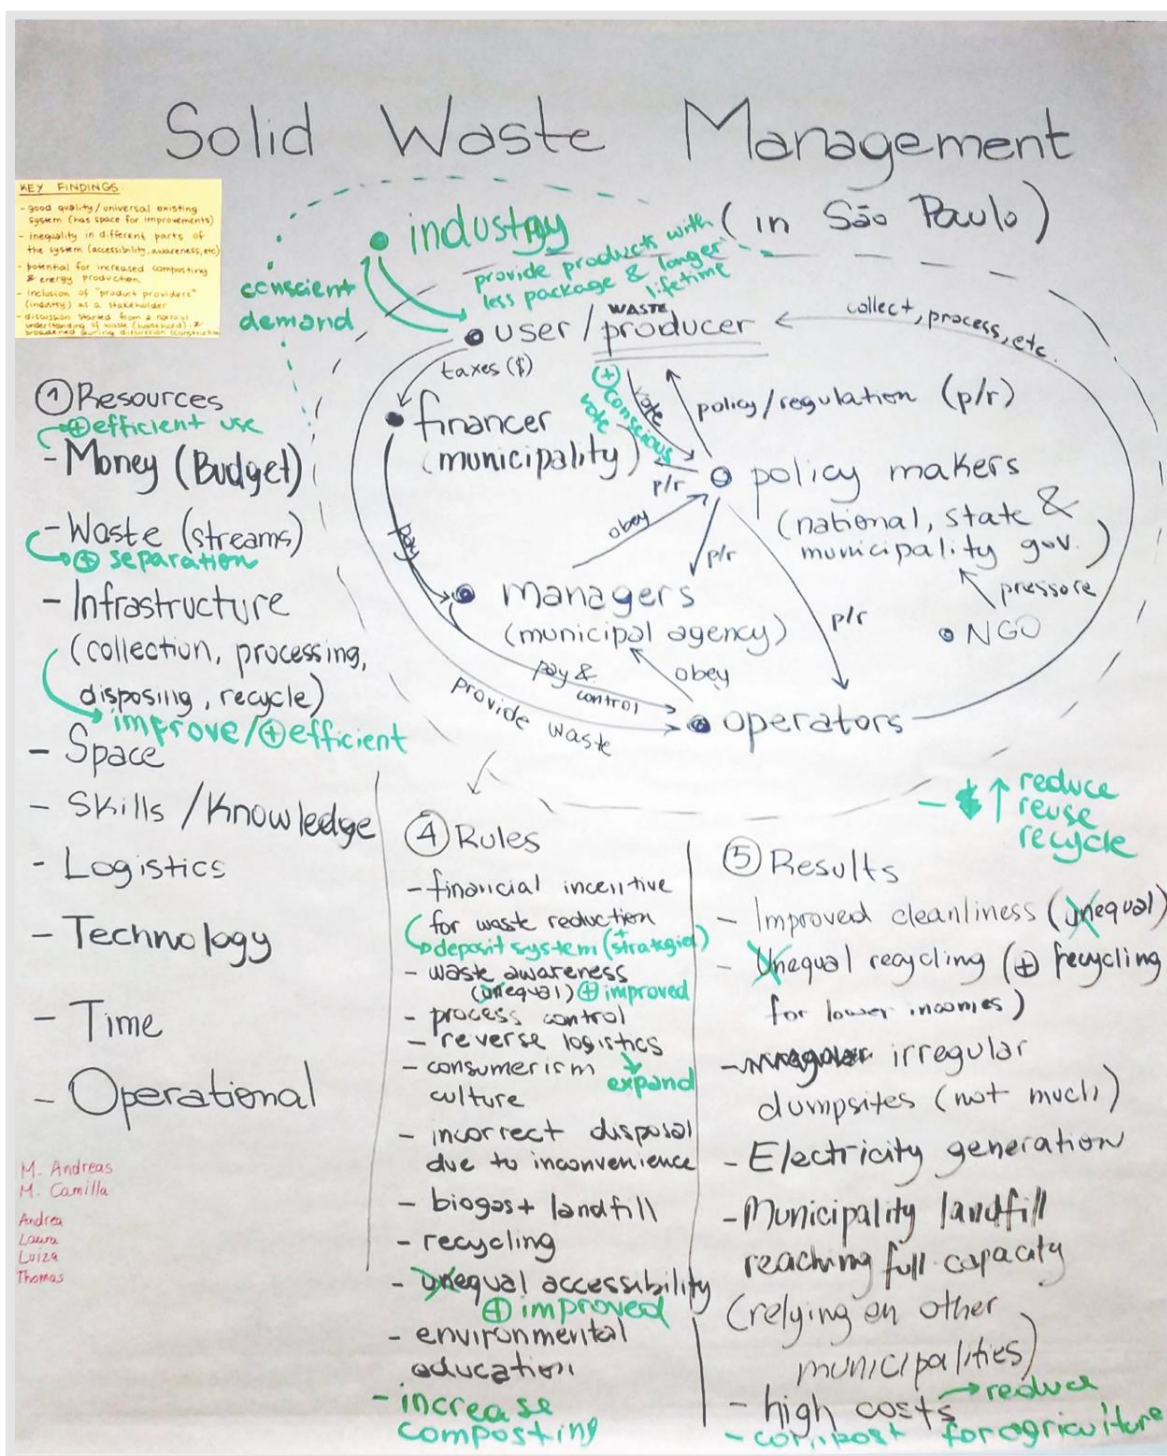 Solid Waste Management
(in São Paulo)
KEY FINDINGS
- good quality/universal existing
system (has space for improvements)
- inequality in different parts of
the system (accessibility, awareness, etc)
- potential for increased composting
& energy production
- inclusion of "product providers"
(industry) as a stakeholder
- discussion started from a narrow
understanding of waste (household) &
broadened during discussion
industry
provide products with
less package & longer
lifetime
conscient
demand
user / WASTE producer
collect, process, etc.
taxes ($)
financer
(municipality)
vote
⊕ conscious
vote
policy/regulation (p/r)
p/r
policy makers
(national, state &
municipality gov.)
pressore
NGO
obey
p/r
p/r
pay
managers
(municipal agency)
pay &
control
obey
provide waste
operators
reduce
reuse
recycle
① Resources
⊕ efficient use
- Money (Budget)
- Waste (streams)
⊕ separation
- Infrastructure
(collection, processing,
disposing, recycle)
improve/⊕ efficient
- Space
- Skills / Knowledge
- Logistics
- Technology
- Time
- Operational
M. Andreas
M. Camilla
Andrea
Laura
Luiza
Thomas
④ Rules
- financial incentive
for waste reduction
deposit system (+ strategies)
- waste awareness
(unequal) ⊕ improved
- process control
- reverse logistics
expand
- consumerism
culture
- incorrect disposal
due to inconvenience
- biogas + landfill
- recycling
- Unequal accessibility
⊕ improved
- environmental
education
- increase
composting
⑤ Results
- Improved cleanliness (unequal)
- Unequal recycling (⊕ recycling
for lower incomes)
- irregular
dumpsites (not much)
- Electricity generation
- Municipality landfill
reaching full capacity
(relying on other
municipalities)
- high costs → reduce
- compost for agriculture